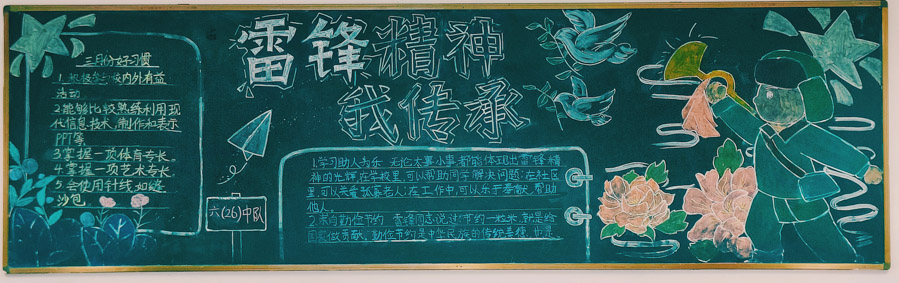 雷锋精神
我传承
三月份好习惯
1.积极参加校内外有益
活动
2.能够比较熟练利用现
代信息技术,制作和表示
PPT等
3.掌握一项体育专长。
4.掌握一项艺术专长
5.会使用针线如缝
沙包
六(26)中队
1.学习助人为乐 无论大事小事都能体现出雷锋精
神的光辉,在学校里,可以帮助同学解决问题;在社区
里,可以关爱孤寡老人;在工作中,可以乐于奉献,帮助
他人。
2.崇尚勤俭节约 雷锋同志说过:节约一粒米,就是给
国家做贡献。勤俭节约是中华民族的传统美德,也是